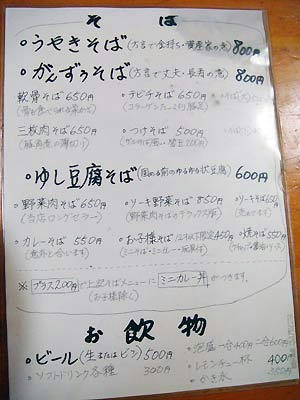 そば
うやきそば(方言で金持ち・資産家の意) 800円
がんずぅそば(方言で丈夫・長寿の意) 800円
軟骨そば650円 ・テビチそば650円
(コラーゲンたっぷり豚足)
三枚肉そば650円 ・つけそば 500円
ゆし豆腐そば(固める前のゆるゆる状豆腐) 600円
野菜肉そば650円 ・ソーキ野菜そば850円 ・ソーキそば650円
(当店ロングセラー) (野菜肉そばデラックス版)
・カレーそば 550円 ・お子様そば(12才以下限定)450円 ・焼そば550円
(意外と合います) (ミニそば・ミニカレー・玩具付)
※プラス200円で上記そばメニューにミニカレー丼がつきます。
(お子様除く)
お飲物
・ビール(生またはビン)500円 ・泡盛一合400円 二合600円
・ソフトドリンク各種 300円 ・レモンチュー杯 400円
・かき氷 350円